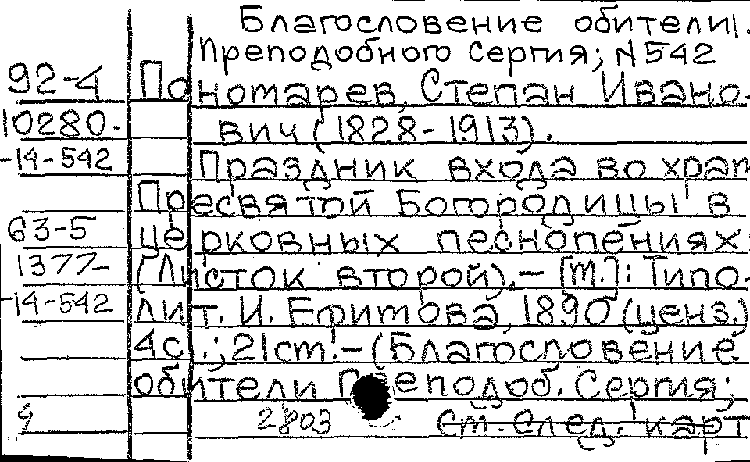 Благословение обители
Преподобного Сергия; N542
92-4 Пономарев, Степан Ивано-
10280- вич (1828-1913).
-14-542 Праздник входа во храм
Пресвятой Богородицы в
63-5 церковных песнопениях
1377- (Листок второй).- [М.]: Типо-
-14-542 лит. И. Ефимова, 1890 (ценз.)
4с.; 21см.- (Благословение
обители Преподоб. Сергия;
2803 см. след. карт